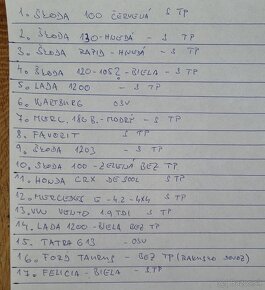 1. ŠKODA 100 ČERVENÁ S TP
2. ŠKODA 130-HNEDÁ - S TP
3. ŠKODA RAPID-HNEDÁ - S TP
4. ŠKODA 120-105L-BIELA - S TP
5. LADA 1200 - S TP
6. WARTBURG OSV
7. MERC. 180 B.-MODRÝ - S TP
8. FAVORIT S TP
9. ŠKODA 1203 - S TP
10. ŠKODA 100-ZELENÁ BEZ TP
11. HONDA CRX DE SOOL S TP
12. MERCEDES E-4.2-4X4 S TP
13. VW VENTO 1.9 TDI S TP
14. LADA 1200 - BIELA BEZ TP
15. TATRA 613 - OSV
16. FORD TAUNUS - BEZ TP (RAKÚSKO DOVOZ)
17. FELICIA - BIELA - S TP